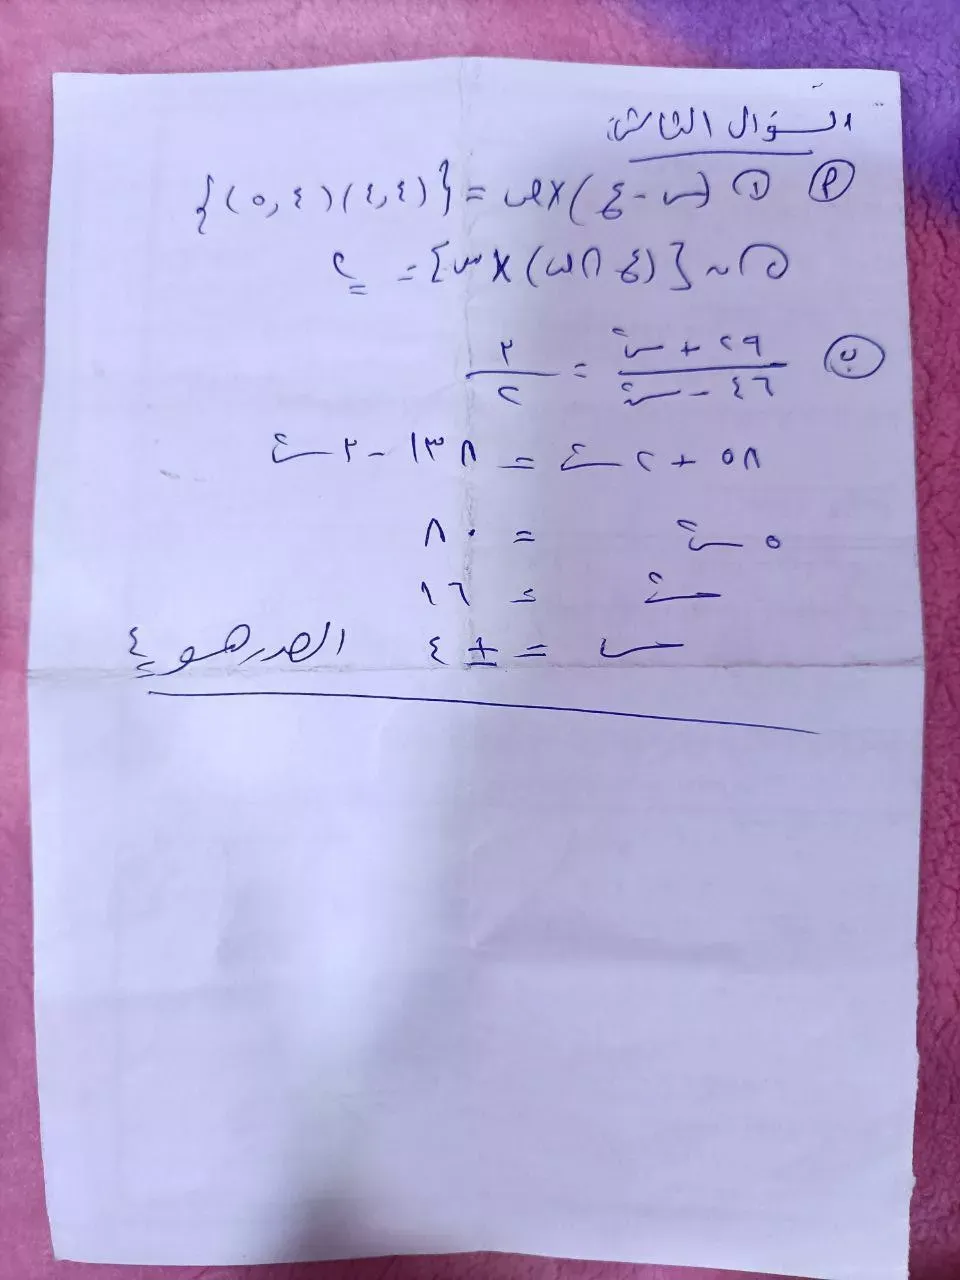 السؤال الثالث
(أ) (١) (س - ع) × ص = {(٤,١) (٤,٥)}
(٢) ~ [(ع ∩ ص) × س] = ٢
(ب) (٢٩ + س٢) / (٤٦ - س٢) = ٣ / ٢
٥٨ + ٢ س٢ = ١٣٨ - ٣ س٢
٥ س٢ = ٨٠
س٢ = ١٦
س = ± ٤ العدد هو ٤